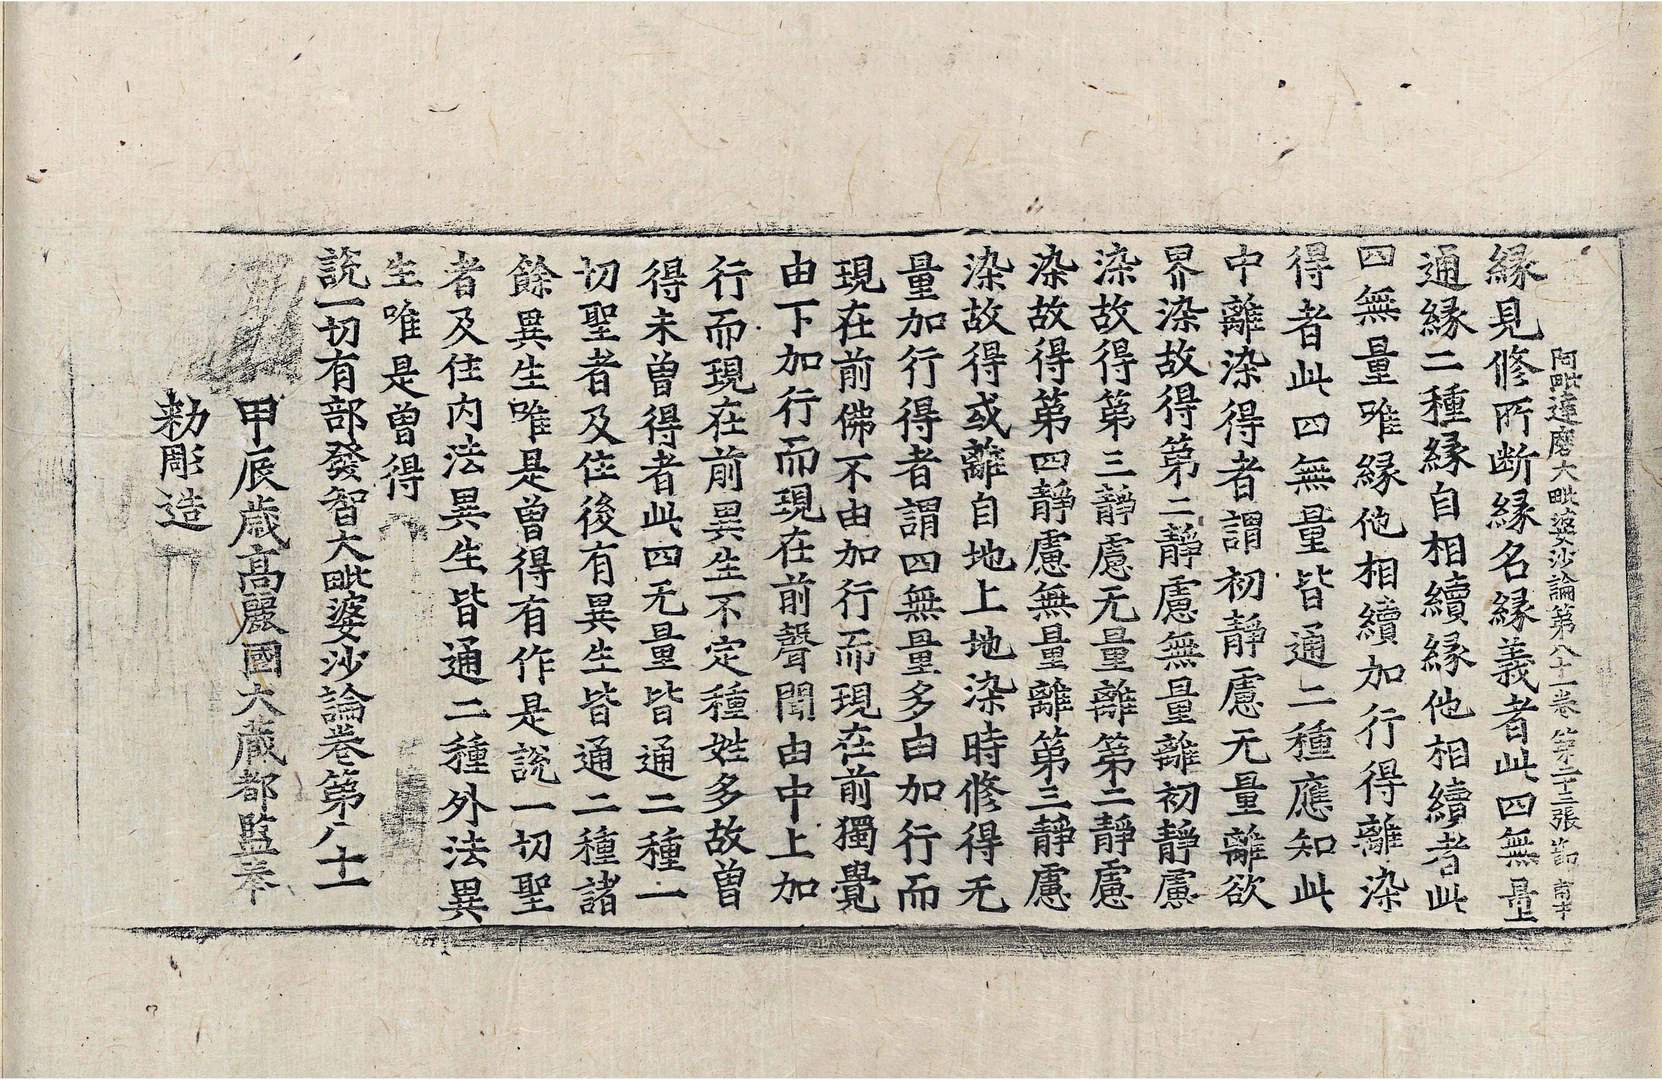 阿毗達磨大毗婆沙論第八十一卷 第二十三張
緣見修所斷緣名緣義者此四無量
通緣二種緣自相續緣他相續者此
四無量唯緣他相續加行得離染
得者此四無量皆通二種應知此
中離染得者謂初靜慮无量離欲
界染故得第二靜慮無量離初靜慮
染故得第三靜慮无量離第二靜慮
染故得第四靜慮無量離第三靜慮
染故得或離自地上地染時修得无
量加行得者謂四無量多由加行而
現在前佛不由加行而現在前獨覺
由下加行而現在前聲聞由中上加
行而現在前異生不定種姓多故曾
得未曾得者此四无量皆通二種一
切聖者及住後有異生皆通二種諸
餘異生唯是曾得有作是說一切聖
者及住內法異生皆通二種外法異
生唯是曾得
說一切有部發智大毗婆沙論卷第八十一
甲辰歲高麗國大藏都監奉
勑彫造